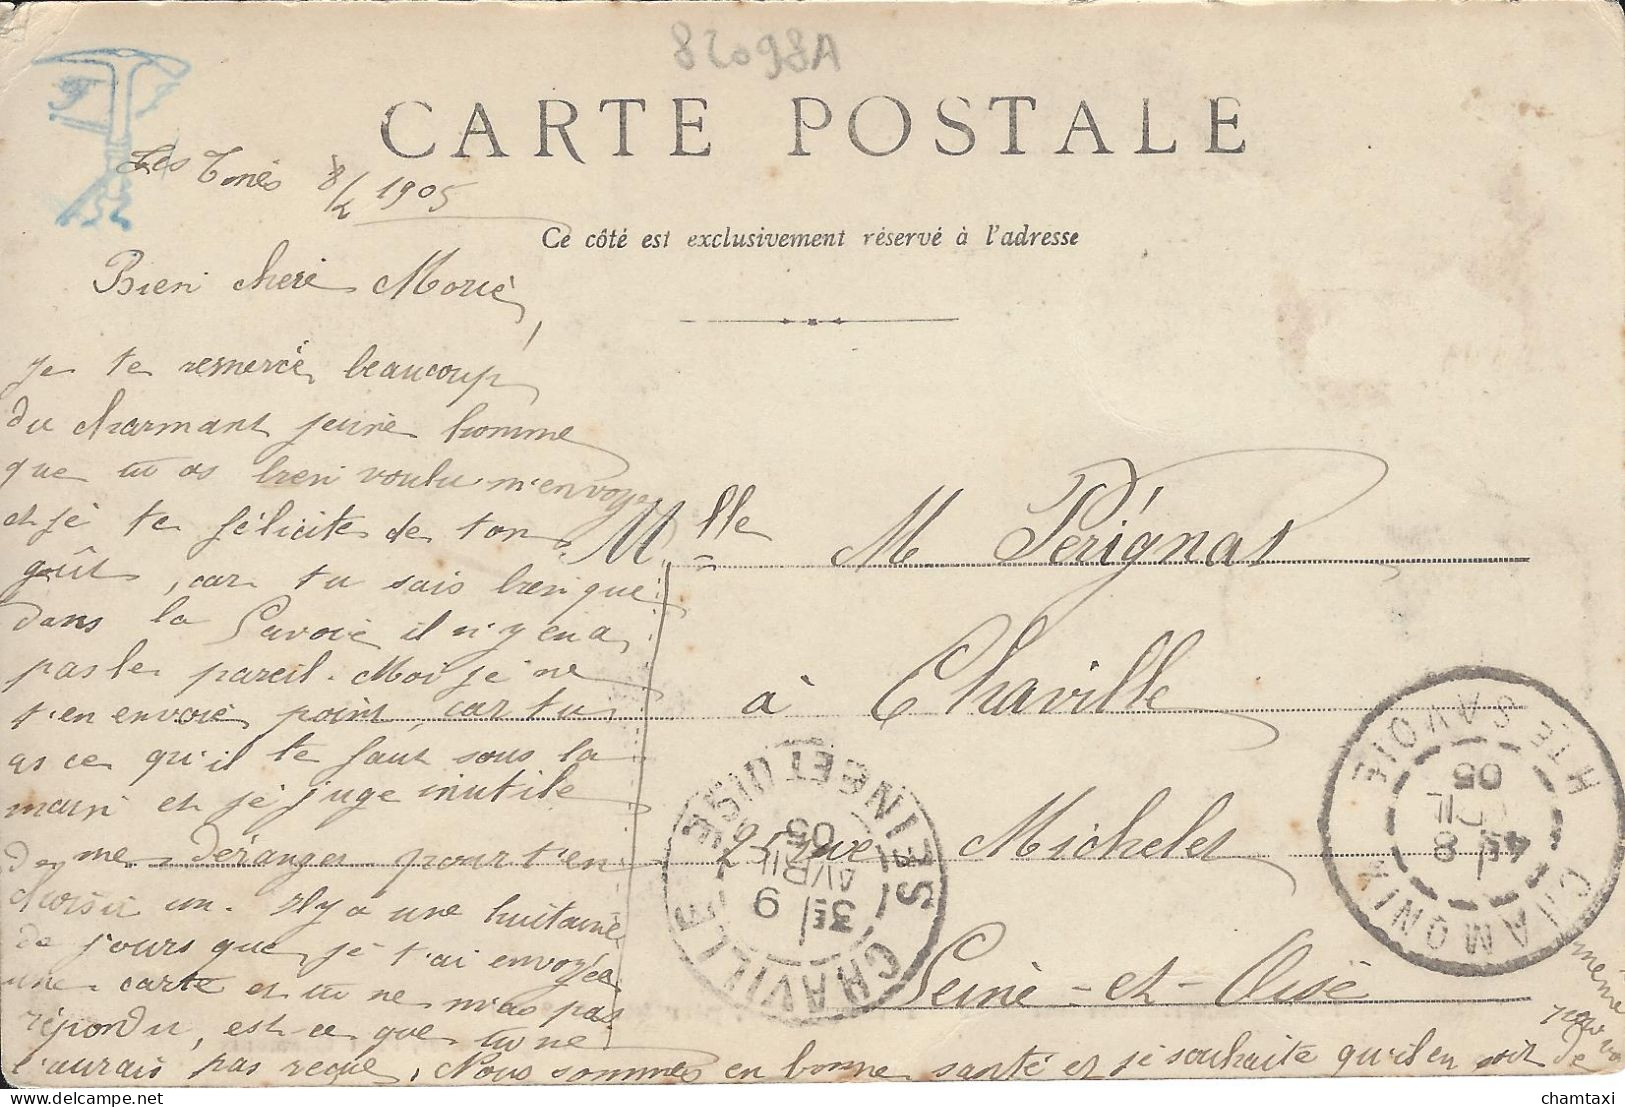 82098A
CARTE POSTALE
Les 8/4 1905
Ce côté est exclusivement réservé à l'adresse
Bien chère Marie,
Je te remercie beaucoup
du charmant jeune homme
que tu as bien voulu m'envoyer
et je te félicite de ton
goût, car tu sais bien que
dans la Savoie il n'y en a
pas le pareil. Moi je ne
t'en envoie point, car tu
as ce qu'il te faut sous la
main et je juge inutile
de me déranger pour t'en
choisir un. Il y a une huitaine
de jours que je t'ai envoyée
une carte et tu ne m'as pas
répondu, est-ce que tu ne
l'aurais pas reçue, Nous sommes en bonne santé et je souhaite qu'il en soit de
même pour
Mlle M Pérignat
à Chaville
rue Michelet
Seine-et-Oise
CHAVILLE SEINE ET OISE
3E 9
AVRIL
05
CHAMONIX HTE SAVOIE
4E 8
05
chamtaxi